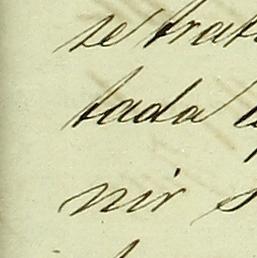 se trat
tada
nir